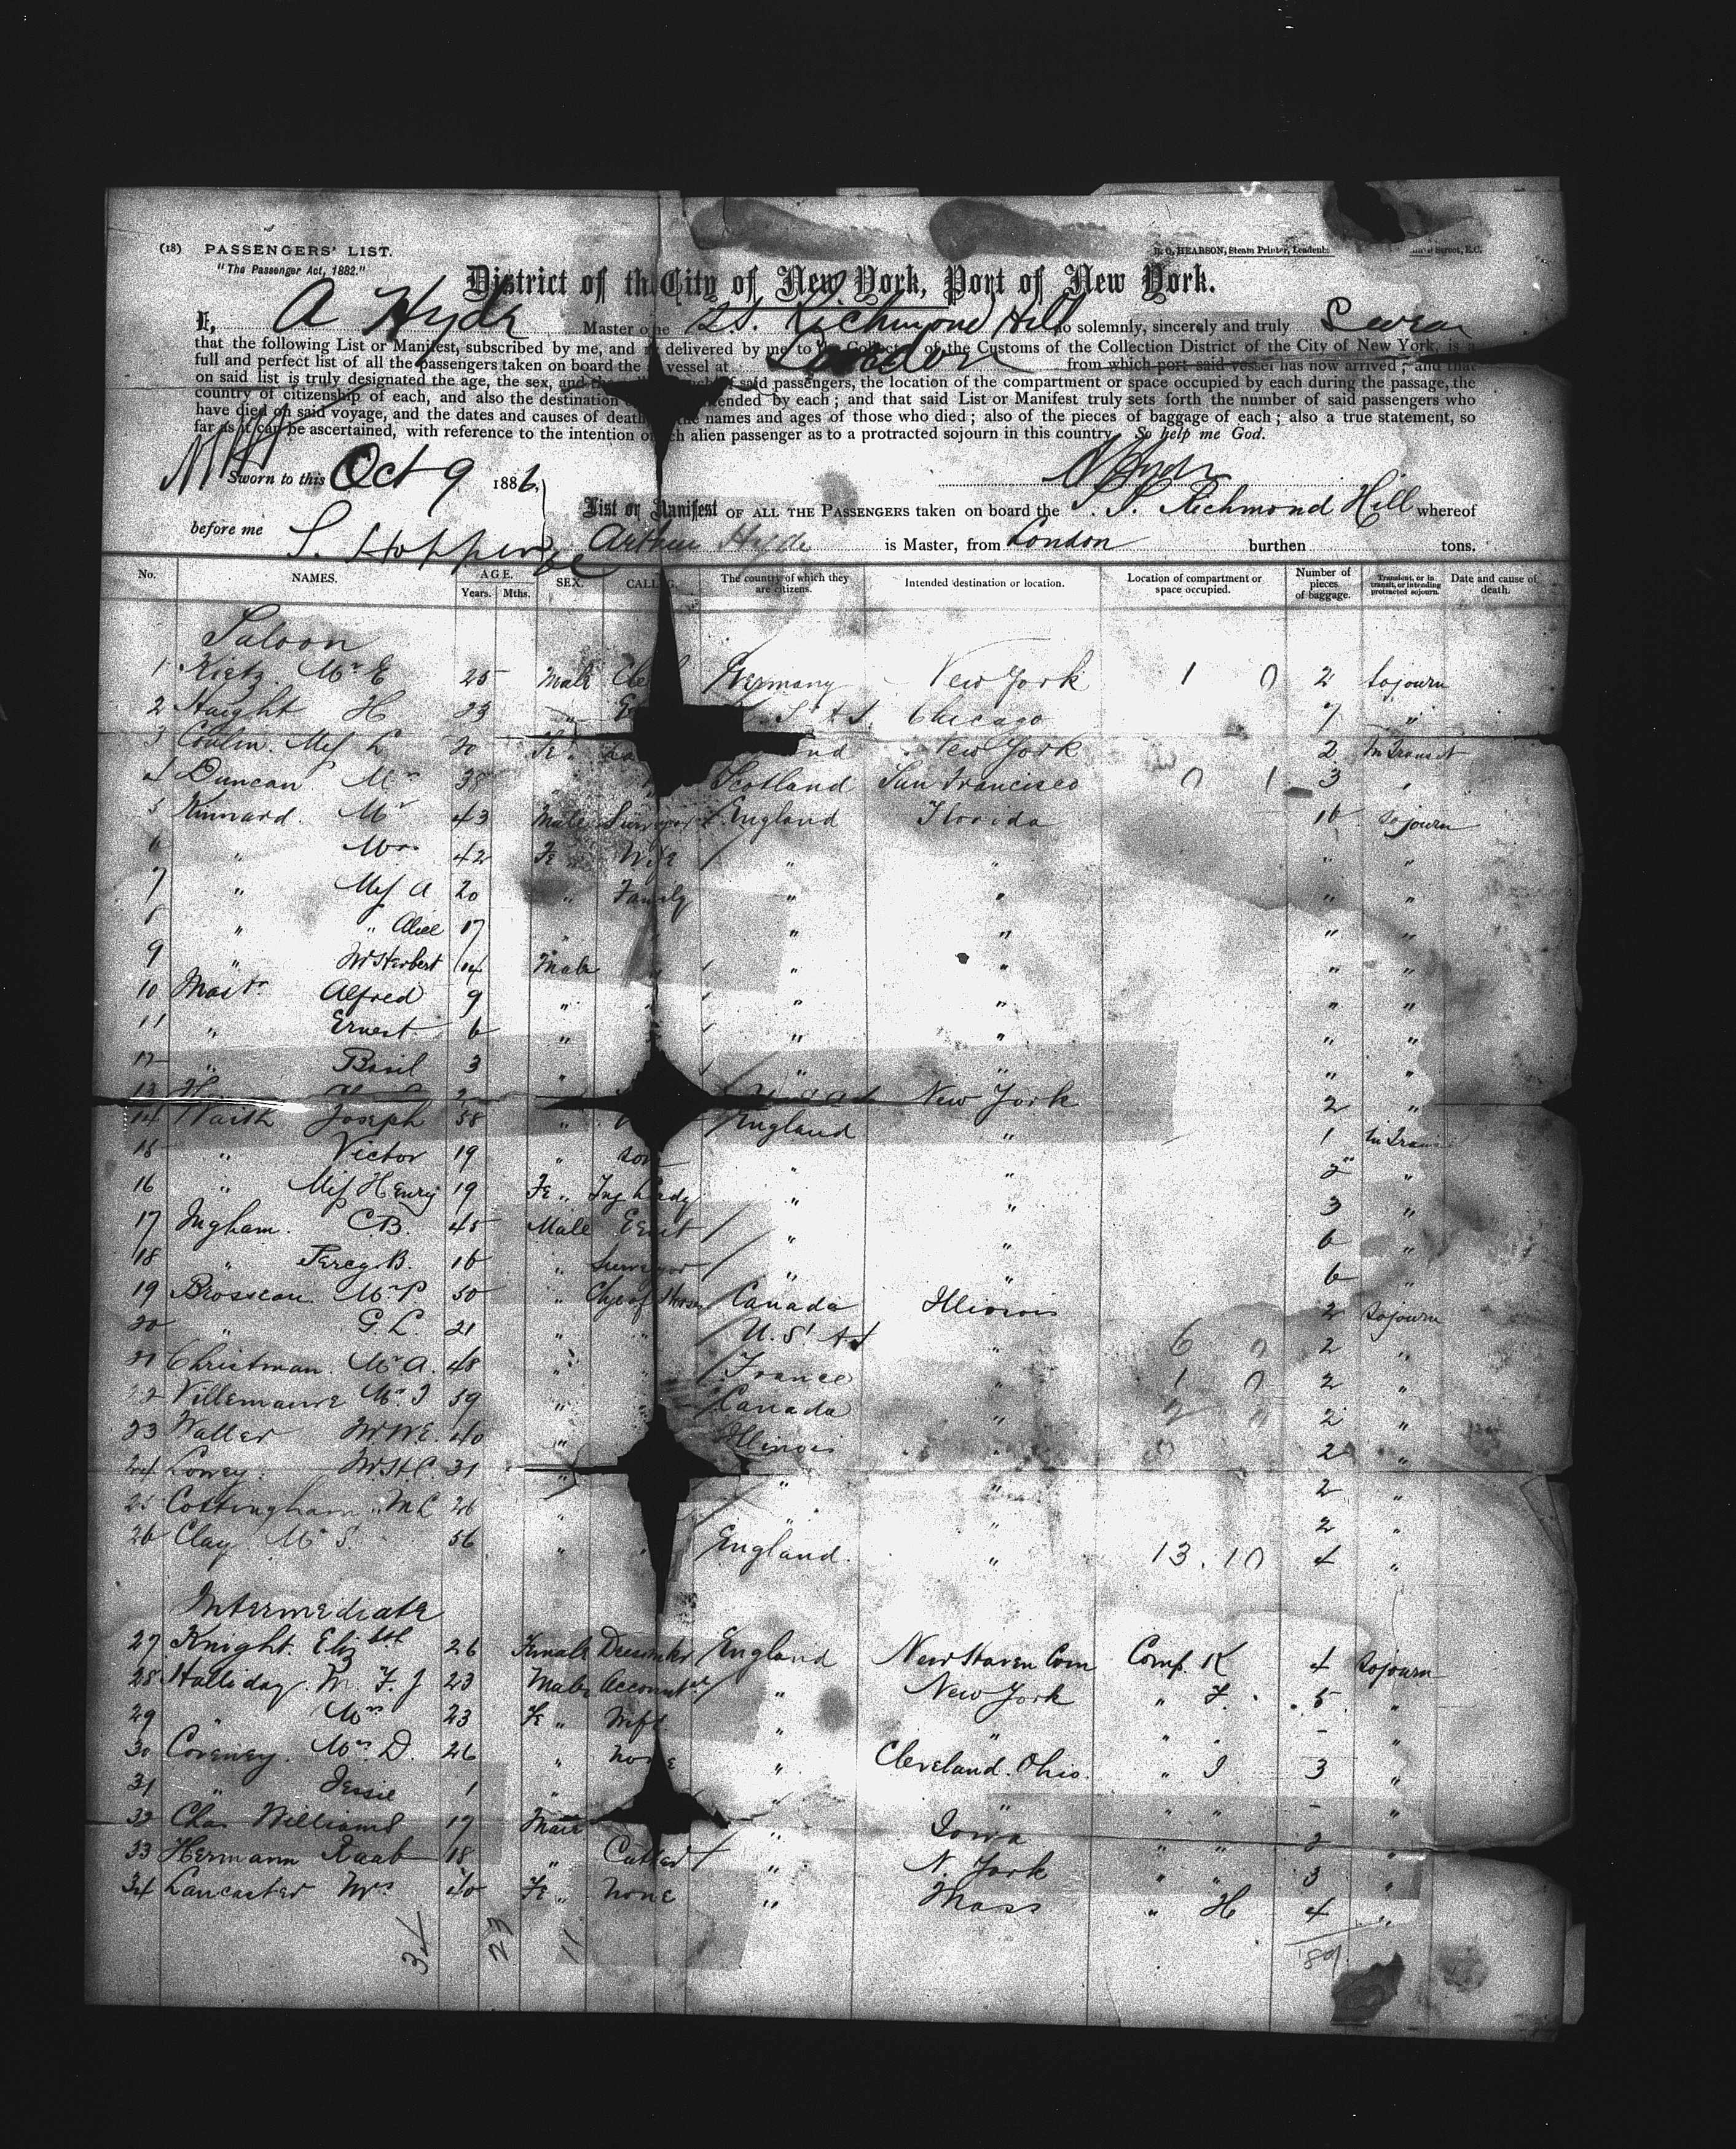 (18) PASSENGERS' LIST.
"The Passenger Act, 1882."
HEARSON, Steam Printer, Street, E.C.
District of the City of New York, Port of New York.
I, A Hyde Master o SS. Richmond Hill do solemnly, sincerely and truly Swear
that the following List or Manifest, subscribed by me, and delivered by me to the Collector of the Customs of the Collection District of the City of New York, is a
full and perfect list of all the passengers taken on board the vessel at London from which port said vessel has now arrived; and that
on said list is truly designated the age, the sex, and of said passengers, the location of the compartment or space occupied by each during the passage, the
country of citizenship of each, and also the destination ended by each; and that said List or Manifest truly sets forth the number of said passengers who
have died on said voyage, and the dates and causes of death, names and ages of those who died; also of the pieces of baggage of each; also a true statement, so
far as it can be ascertained, with reference to the intention o ch alien passenger as to a protracted sojourn in this country. So help me God.
Sworn to this Oct 9 1886. A Hyde
List or Manifest OF ALL THE PASSENGERS taken on board the S. S. Richmond Hill whereof
before me Arthur Hyde is Master, from London burthen tons.
No. NAMES. AGE. Years. Mths. SEX. CALLING. The country of which they are citizens. Intended destination or location. Location of compartment or space occupied. Number of pieces of baggage. Transient, or in transit, or intending protracted sojourn. Date and cause of death.
Saloon
1 Mr E 25 Male Germany New York 1 0 2 Sojourn
2 Haight H 23 " Chicago 7 "
3 Miss L 20 Fe " New York 2 In Transit
4 Duncan 38 " Scotland San Francisco 0 1 3 "
5 Kinnard. Mr 43 Male Surveyor England Florida 16 Sojourn
6 " Mrs 42 Fe Wife " " " "
7 " Miss A 20 " Family " " " "
8 " " Alice 17 " " " " " "
9 " Mr Herbert 14 Male " " " " "
10 Mastr Alfred 9 " " " " "
11 " Ernest 6 " " " " "
12 " Basil 3 " " " "
13 New York 2 "
14 Waith Joseph 58 " England " 1 In Transit
15 " Victor 19 " Son " " 2 "
16 " Miss Henry 19 Fe " " " 3 "
17 Ingham. C.B. 45 Male " " 6 "
18 " Percy B. 16 " Surveyor " " 6 "
19 Brosseau Mr P 50 " Canada Illinois 2 Sojourn
20 " G. L. 21 " " U.S. " 6 0 2 "
21 Christman. Mr A. 48 " " France " 1 0 2 "
22 Villemaure Mr J 59 " Canada " 2 2 "
23 Waller Mr W.E. 40 " Illinois " 2 "
24 Lowey. Mr H.C. 31 " " " 2 "
25 Cottingham. Mr C 26 " " " 2 "
26 Clay Mr S. 56 " " England. " 13.10 4 "
Intermediate
27 Knight. Elizbth 26 Female England New Haven Conn Comp. K 4 Sojourn
28 Halliday. M. F. J 23 Male Accountt " New York " F. 5 "
29 " Mrs 23 Fe " Wife " " " " - "
30 Coveney. Mrs D. 26 " None " Cleveland. Ohio. " I 3 "
31 " Jessie 1 " " " " " - "
32 Chas Williams 17 Male " Iowa " " 2 "
33 Hermann Raab 18 " Cutter " N. York " " 3 "
34 Lancaster Mrs 40 Fe " None " Mass " H 4 "
34 23 11 89